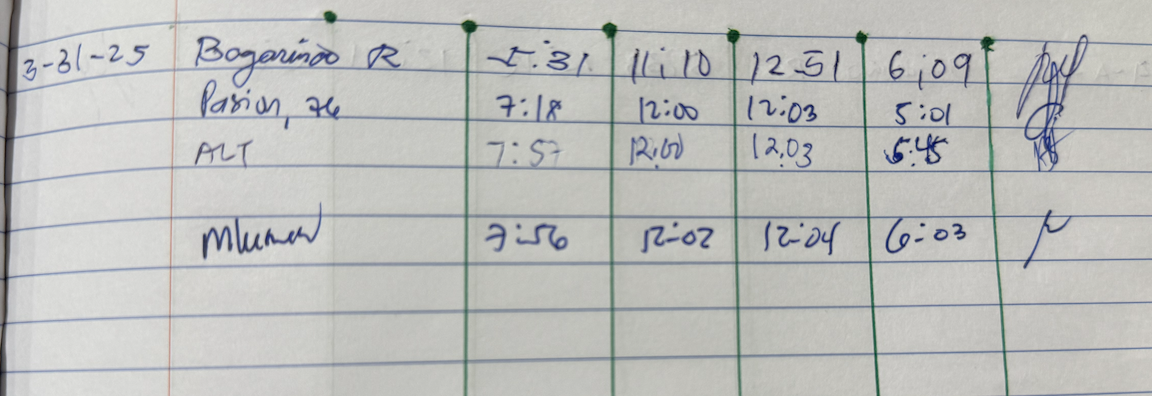 3-31-25 Bogarinoo R 5:31 11:10 12 51 6:09
Pasion, 7:18 12:00 12:03 5:01
ALT 7:57 12:00 12:03 5:45
7:56 12:02 12:04 6:03